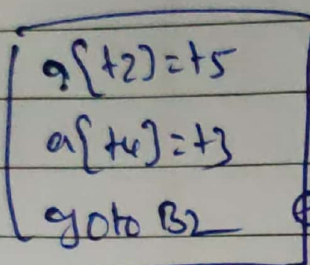 a[t2]=t5
a[t4]=t3
goto B2